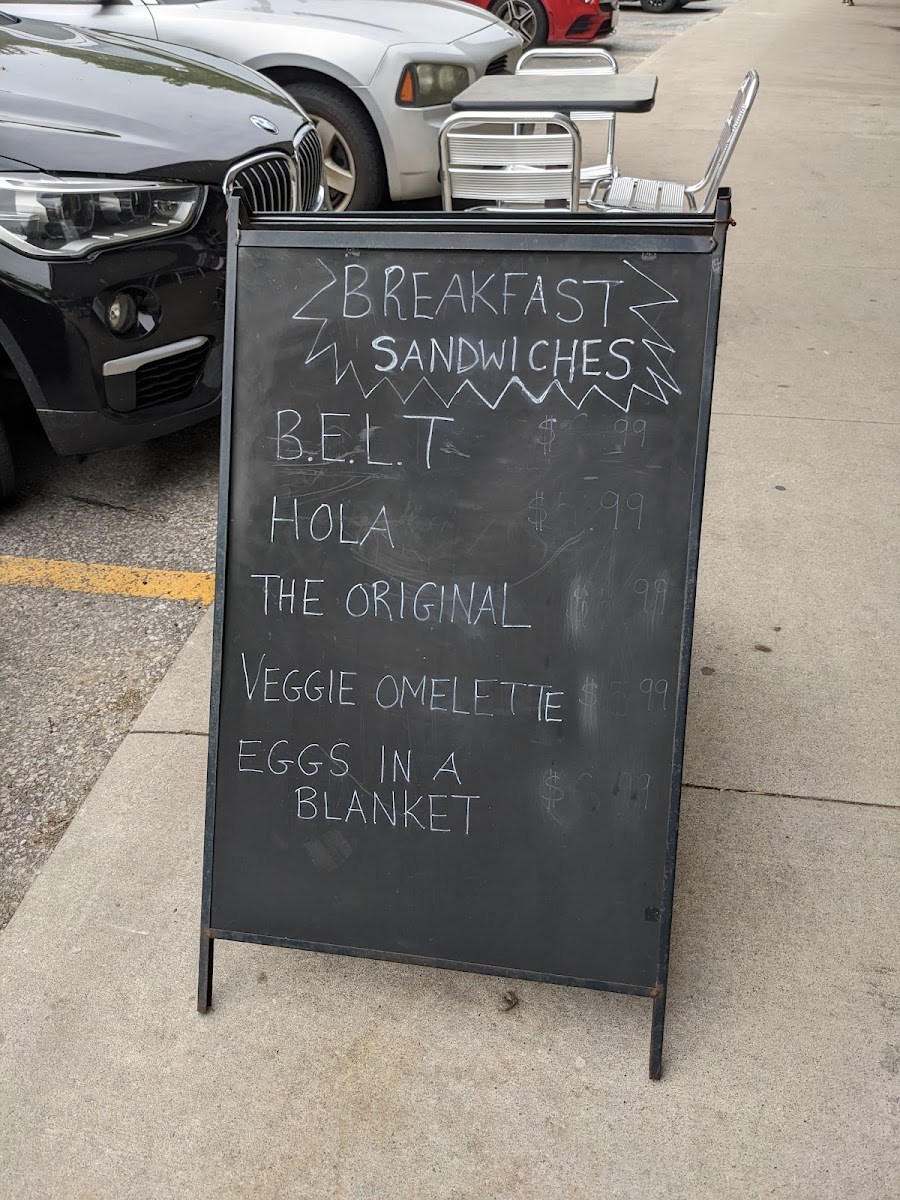 BREAKFAST
SANDWICHES
B.E.L.T $ 99
HOLA $5.99
THE ORIGINAL $ 99
VEGGIE OMELETTE $5.99
EGGS IN A
BLANKET $6.99